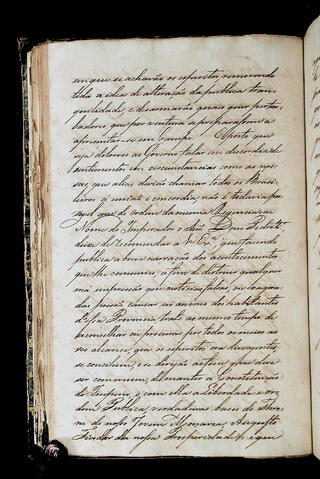 em que se achavão os espiritos, removendo
toda a idea de alteração da publica tran-
quilidade, e desarmarão geraes quer pertur-
badores que por ventura se preparassem a
apresentar-se em Campo. Posto que
seja doloroso ao Governo fallar em discordia de
sentimentos em circunstancias como as nos-
sas, que alias devião chamar todos os Brasi-
leiros á união e concordia, não é todavia por
aquel que de ordem da mesma Regencia em
Nome do Imperador o Snr. Dom Pedro 2º
deixe de recomendar a V. Exª. que fazendo
publica a breve narração dos acontecimentos
que lhe communico, a fim de destruir qualquer
má impressão que noticias falsas, ou exagera-
das possão causar no animo dos habitantes
dessa Provincia trate ao mesmo tempo de
aconselhar ou procurar por todos os meios ao
seo alcance, que os espiritos ora desvairados,
se conciliem, e se dirijão a fim, que deve
ser commum, de manter a Constituição
do Imperio e com ella a Liberdade e or-
dem Publica, verdadeiras bases do Thro-
no do nosso Joven Monarca Augusto
Fiador da nossa Prosperidade; e que